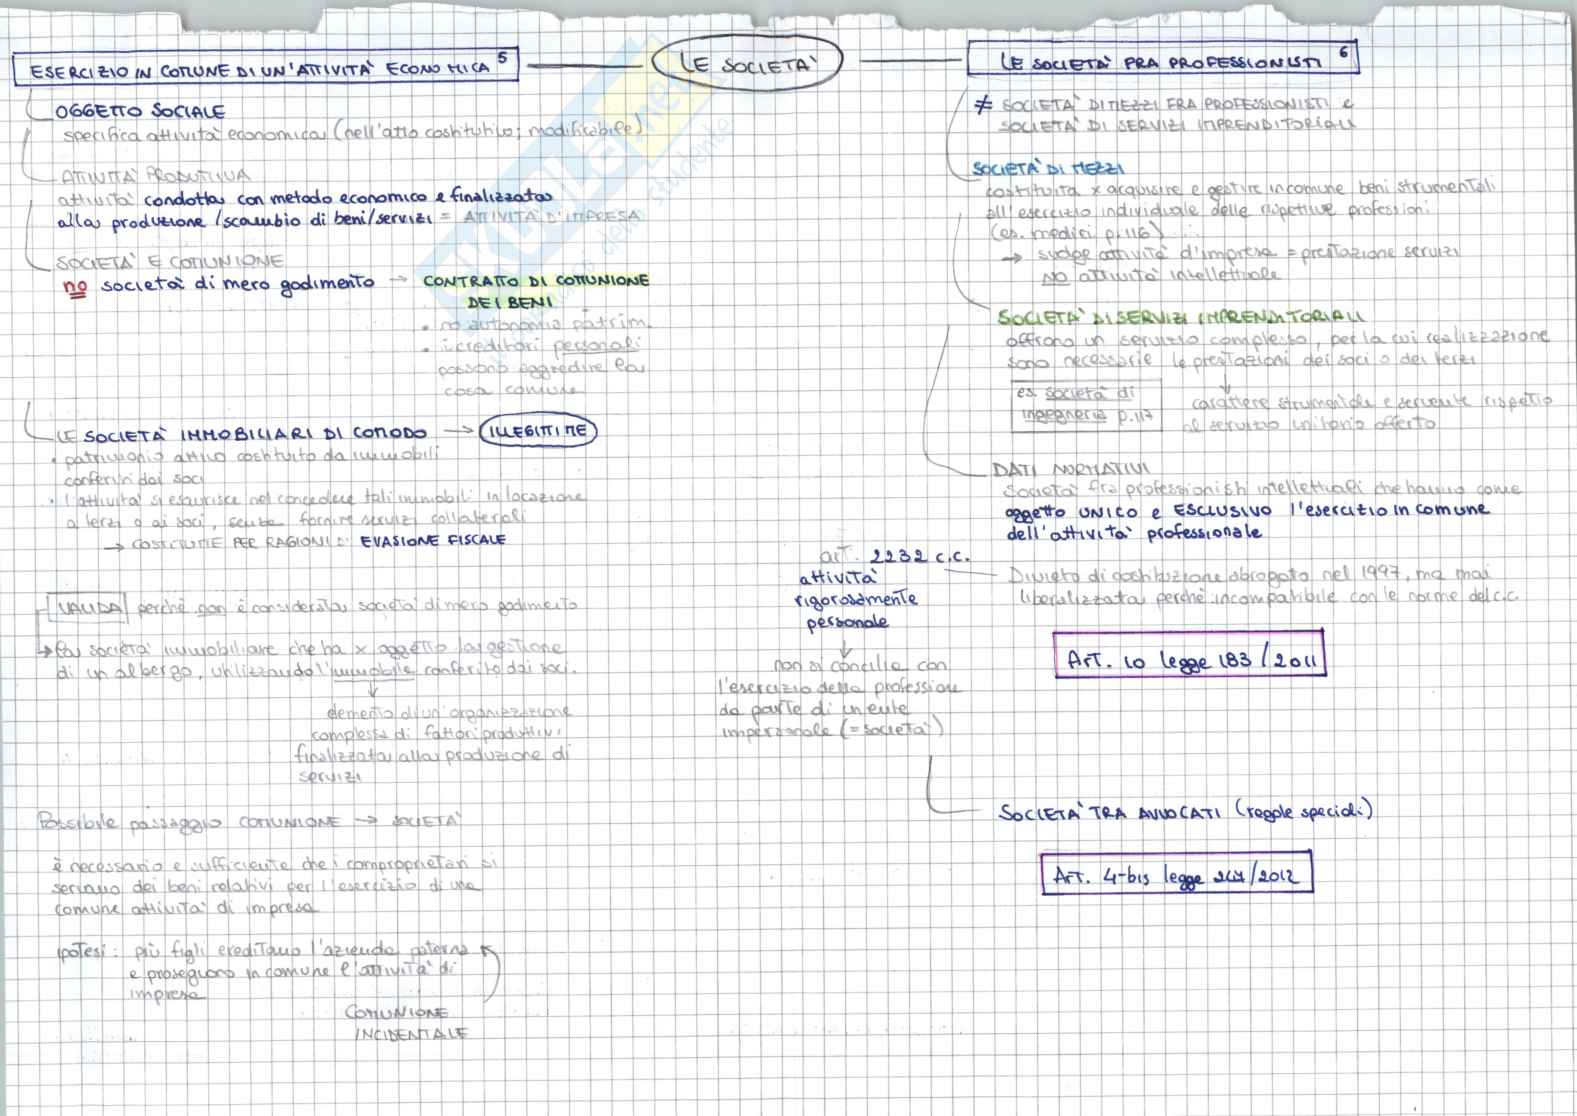 LE SOCIETA'
ESERCIZIO IN COMUNE DI UN'ATTIVITA' ECONOMICA 5
OGGETTO SOCIALE
specifica attività economica (nell'atto costitutivo; modificabile)
ATTIVITA' PRODUTTIVA
attività condotta con metodo economico e finalizzata
alla produzione / scambio di beni/servizi = ATTIVITA' D'IMPRESA
SOCIETA' E COMUNIONE
no società di mero godimento → CONTRATTO DI COMUNIONE
DEI BENI
• no autonomia patrim.
• i creditori personali
possono aggredire la
cosa comune
LE SOCIETA' IMMOBILIARI DI COMODO → ILLEGITTIME
• patrimonio attivo costituito da immobili
conferiti dai soci
• l'attività si esaurisce nel concedere tali immobili in locazione
a terzi o ai soci, senza fornire servizi collaterali
→ COSTITUITE PER RAGIONI DI EVASIONE FISCALE
VALIDA perchè non è considerata società di mero godimento
→ la società immobiliare che ha x oggetto la gestione
di un albergo, utilizzando l'immobile conferito dai soci.
↓
elemento di un'organizzazione
complessa di fattori produttivi
finalizzata alla produzione di
servizi
Possibile passaggio COMUNIONE → SOCIETA'
è necessario e sufficiente che i comproprietari si
servano dei beni relativi per l'esercizio di una
comune attività di impresa
ipotesi: più figli ereditano l'azienda paterna
e proseguono in comune l'attività di
impresa
COMUNIONE
INCIDENTALE
LE SOCIETA' FRA PROFESSIONISTI 6
≠ SOCIETA' DI MEZZI FRA PROFESSIONISTI e
SOCIETA' DI SERVIZI IMPRENDITORIALI
SOCIETA' DI MEZZI
costituita x acquisire e gestire in comune beni strumentali
all'esercizio individuale delle rispettive professioni
(es. medici p.116)
→ svolge attività d'impresa = prestazione servizi
NO attività intellettuale
SOCIETA' DI SERVIZI IMPRENDITORIALI
offrono un servizio complesso, per la cui realizzazione
sono necessarie le prestazioni dei soci o dei terzi
↓
es. società di
ingegneria p.117
carattere strumentale e servente rispetto
al servizio unitario offerto
DATI NORMATIVI
Società fra professionisti intellettuali che hanno come
oggetto UNICO e ESCLUSIVO l'esercizio in comune
dell'attività professionale
art. 2232 c.c.
attività
rigorosamente
personale
↓
non si concilia con
l'esercizio della professione
da parte di un ente
impersonale (= società)
Divieto di costituzione abrogato nel 1997, ma mai
liberalizzata perchè incompatibile con le norme del c.c.
Art. 10 legge 183/2011
SOCIETA' TRA AVVOCATI (regole speciali)
Art. 4-bis legge 247/2012